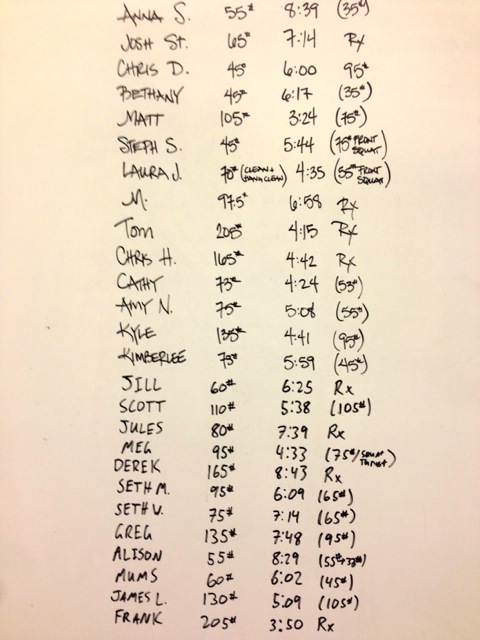 ANNA S. 55# 8:39 (35#)
JOSH ST. 65# 7:14 Rx
CHRIS D. 45# 6:00 95#
BETHANY 45# 6:17 (35#)
MATT 105# 3:24 (75#)
STEPH S. 45# 5:44 (75# FRONT SQUAT)
LAURA J. 70# (CLEAN + HANG CLEAN) 4:35 (55# FRONT SQUAT)
M. 97.5# 6:58 Rx
TOM 205# 4:15 Rx
CHRIS H. 165# 4:42 Rx
CATHY 73# 4:24 (53#)
AMY N. 75# 5:08 (55#)
KYLE 135# 4:41 (95#)
KIMBERLEE 75# 5:59 (45#)
JILL 60# 6:25 Rx
SCOTT 110# 5:38 (105#)
JULES 80# 7:39 Rx
MEG 95# 4:33 (75#/SQUAT THRUST)
DEREK 165# 8:43 Rx
SETH M. 95# 6:09 (65#)
SETH V. 75# 7:14 (65#)
GREG 135# 7:48 (95#)
ALISON 55# 8:29 (55#+33#)
MUMS 60# 6:02 (45#)
JAMES L. 130# 5:09 (105#)
FRANK 205# 3:50 Rx